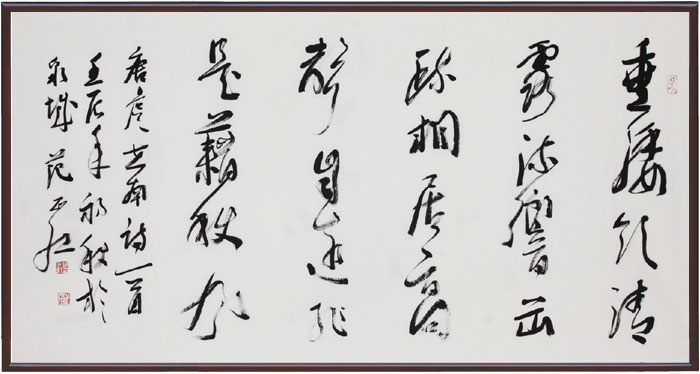 垂緌飲清
露流響出
疏桐居高
聲自遠非
是藉秋風
唐虞世南詩一首
壬辰年初秋於
泉城范